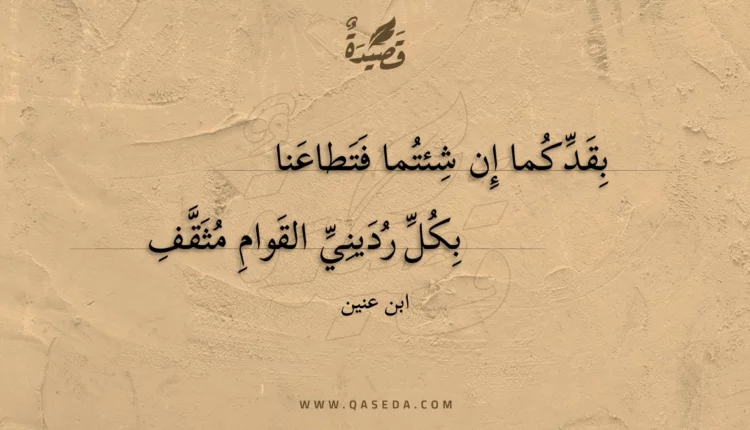 قَصِيدَةٌ
بِقَدِّكُما إِن شِئتُما فَتَطاعَنا
بِكُلِّ رُدَينِيِّ القَوامِ مُثَقَّفِ
ابن عنين
WWW.QASEDA.COM